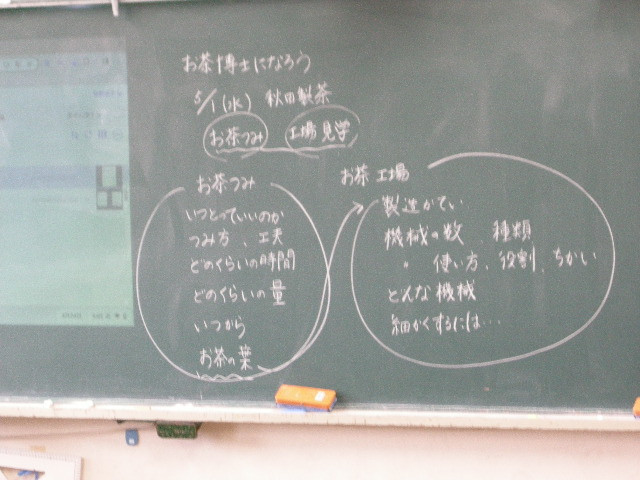 お茶博士になろう
5/1(水) 秋田製茶
お茶つみ 工場見学
お茶つみ
いつとっていいのか
つみ方、工夫
どのくらいの時間
どのくらいの量
いつから
お茶の葉
お茶工場
製造かてい
機械の数 種類
〃 使い方、役割、ちがい
どんな機械
細かくするには…